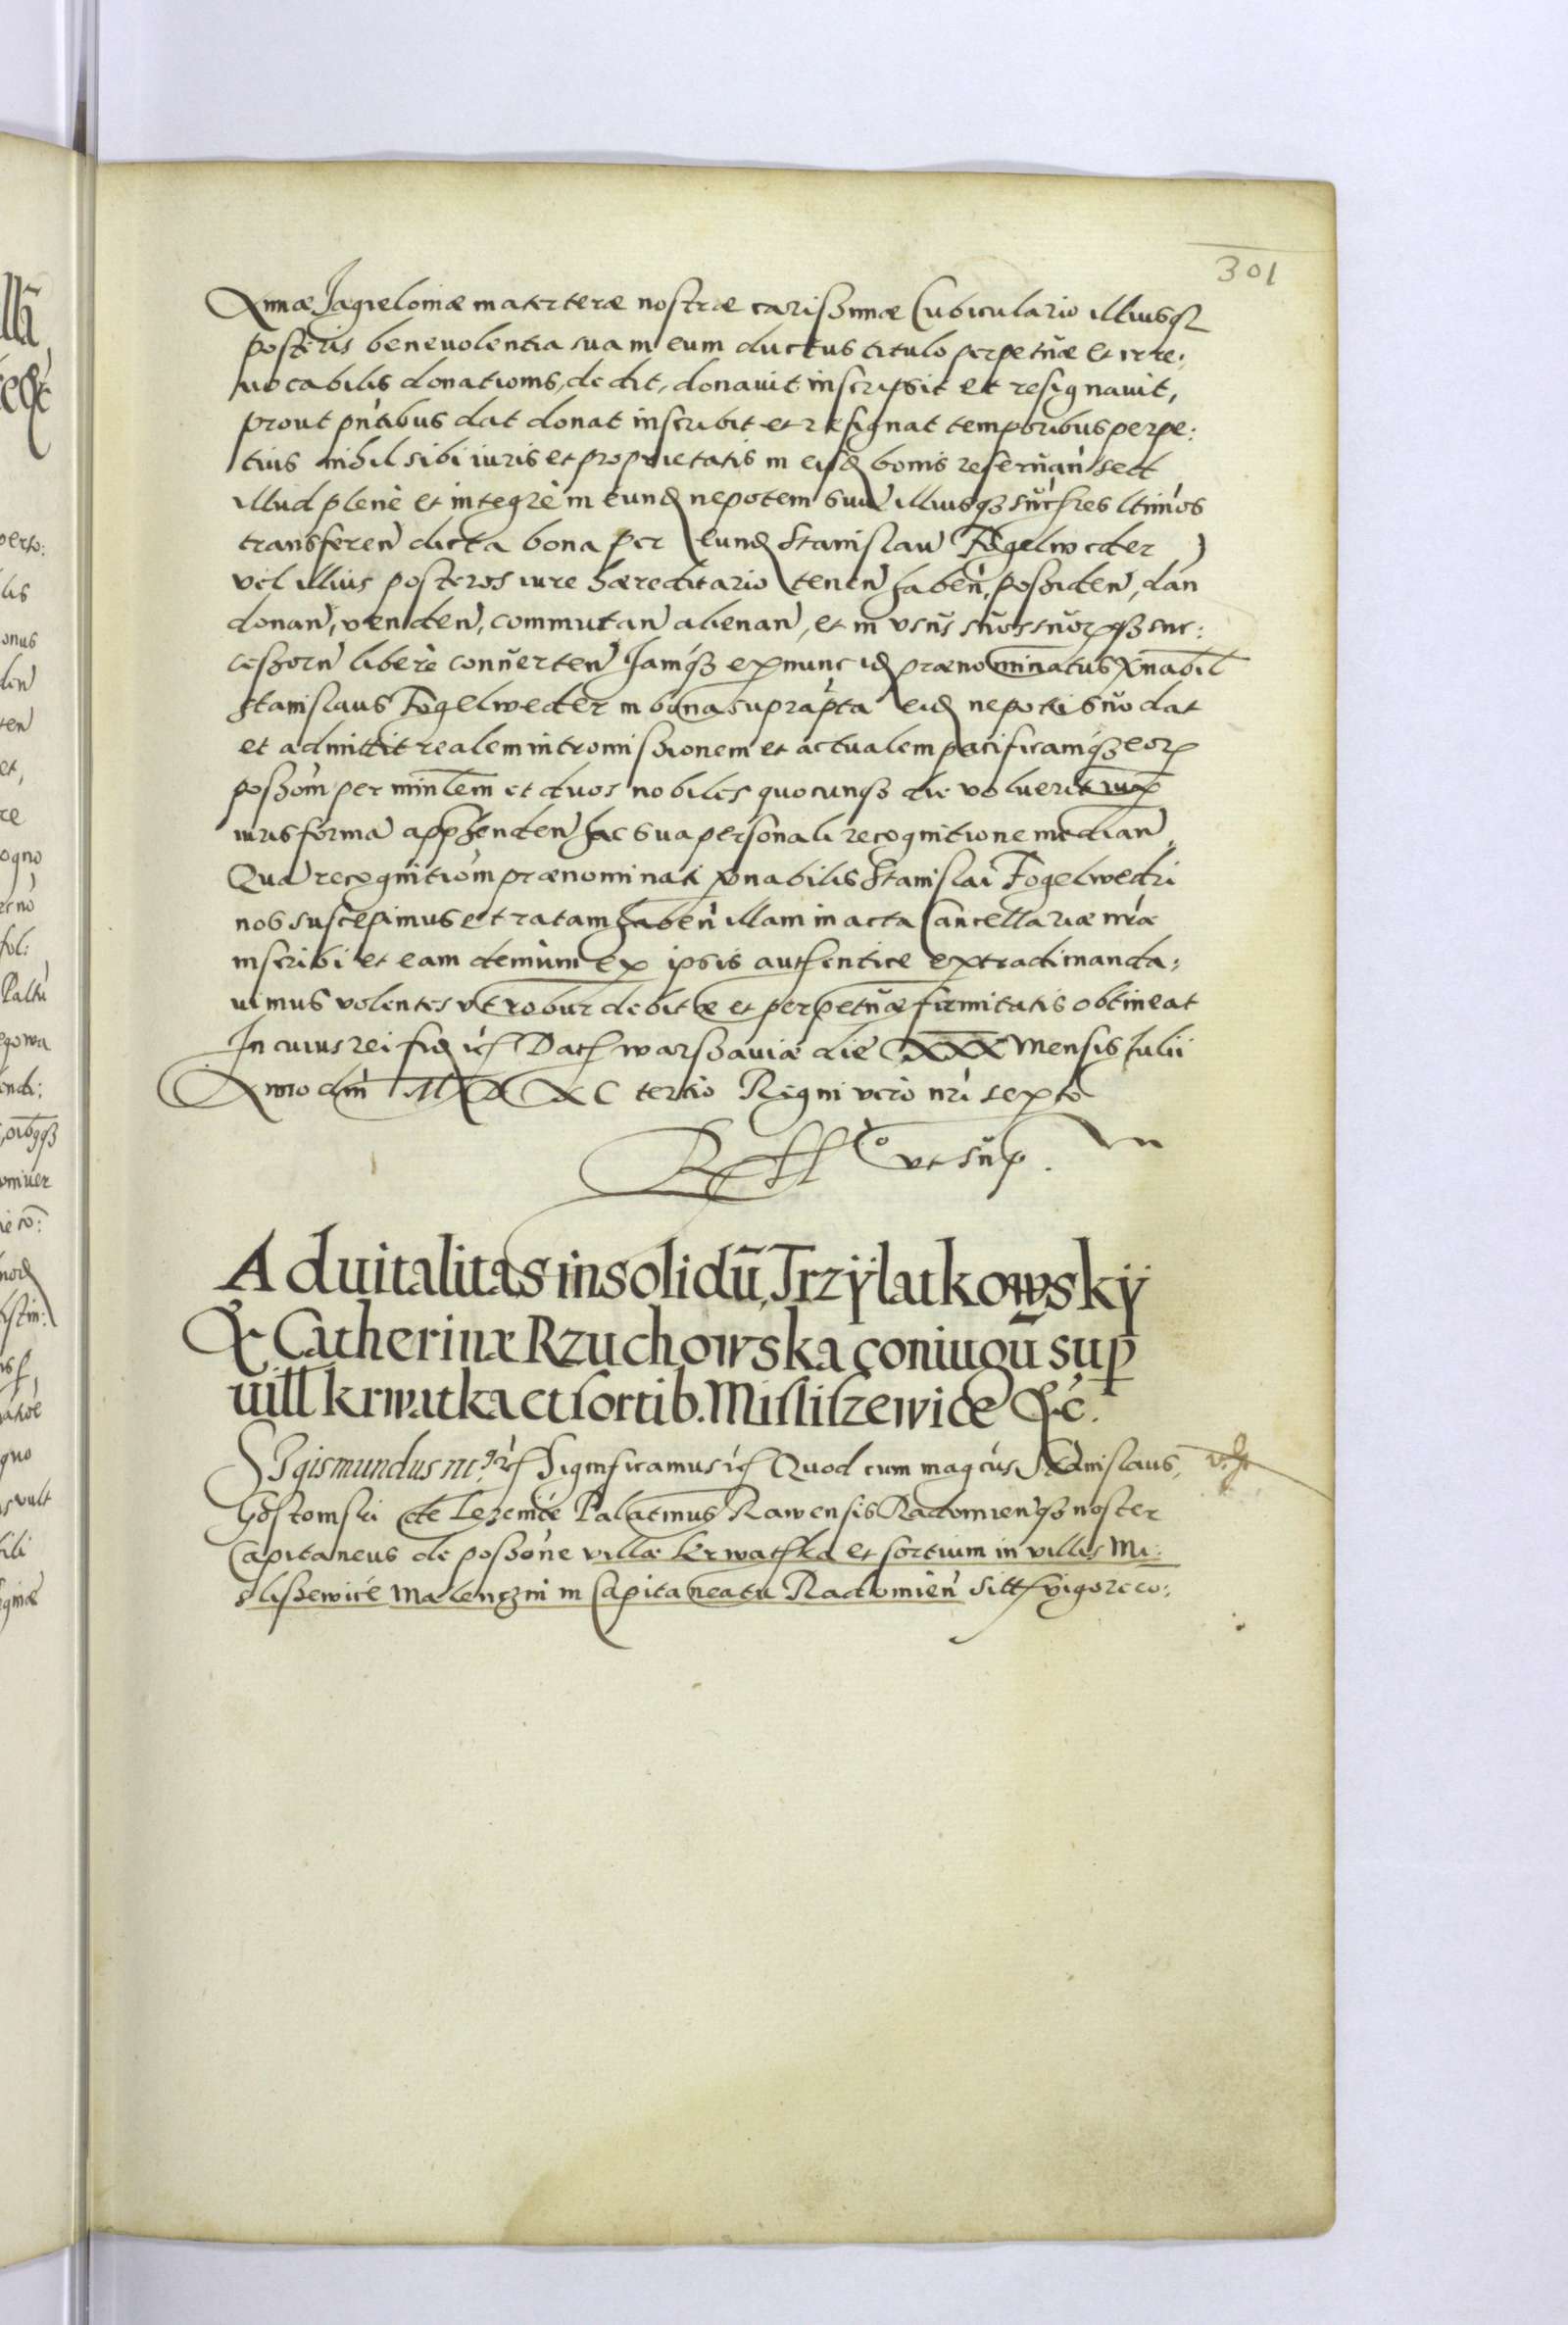 301
Annæ Jagieloniæ materteræ nostræ carißimæ Cubiculario illiusq3
posteris beneuolentia sua in eum ductus titulo perpetuæ et irre:
uocabilis donationis, dedit, donauit inscripsit et resignauit,
prout pñtibus dat donat inscribit et resignat temporibus perpe:
tuis nihil sibi iuris et proprietatis in eisd bonis reseruan sed
illud plenè et integrè in eund nepotem suũ illiusq3 succres ltimos
transferen dicta bona per eund Stanislaũ Fogelweder
vel illius posteros iure hæreditario tenen haben, poßiden, dan
donan, venden, commutan alienan, et in vsus suos suorq3 suc:
ceßorũ liberè conuerten Jamq3 ex nunc id prænominatus vñabil
Stanislaus Fogelweder in bona suprapta eid nepoti suo dat
et admittit realem intromißionem et actualem pacificamq3 eor
poßom per minlem et duos nobiles quocunq3 die voluerit iux
iuris formã apphenden hac sua personali recognitione median
Quã recognitiom prænominati vñabilis Stanislai Fogelwedri
nos suscepimus et ratam haben illam in acta Cancellariæ nræ
inscribi et eam demum ex ipsis authentice extradi manda:
uimus volentes vt robur debitæ et perpetuæ firmitatis obtineat
In cuius rei fid ic Dat warßauiæ die XXX Mensis Julii
Anno dni MDXC tertio Regni vero nri sexto
ut sup.
Aduitalitas insolidũ, Trzÿlatkowskÿ
& Catherinæ Rzuchowska coniugũ sup
uill krwatka et sortib. Mislisżewice &c.
SIgismundus 3us Significamus ic Quod cum magcus Stanislaus
Gostomski de Lezenice Palatinus Rawensis Radomienq3 noster
Capitaneus de poßone villæ Krwathka et sortium in villis Mi:
slißewice Malenczin in Capitaneatu Radomien sitt vigore co: